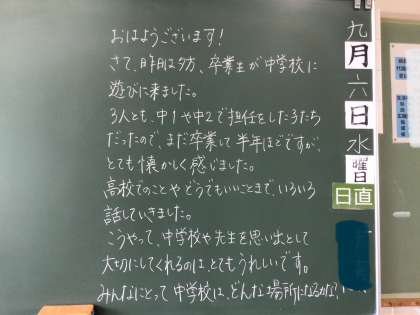 おはようございます!
さて、昨日は夕方、卒業生が中学校に
遊びに来ました。
3人とも、中1や中2で担任をした子たち
だったので、まだ卒業して半年ほどですが、
とても懐かしく感じました。
高校でのことやどうでもいいことまで、いろいろ
話していきました。
こうやって、中学校や先生を思い出として
大切にしてくれるのは、とてもうれしいです。
みんなにとって中学校は、どんな場所になるかな?
九月六日水曜日
日直